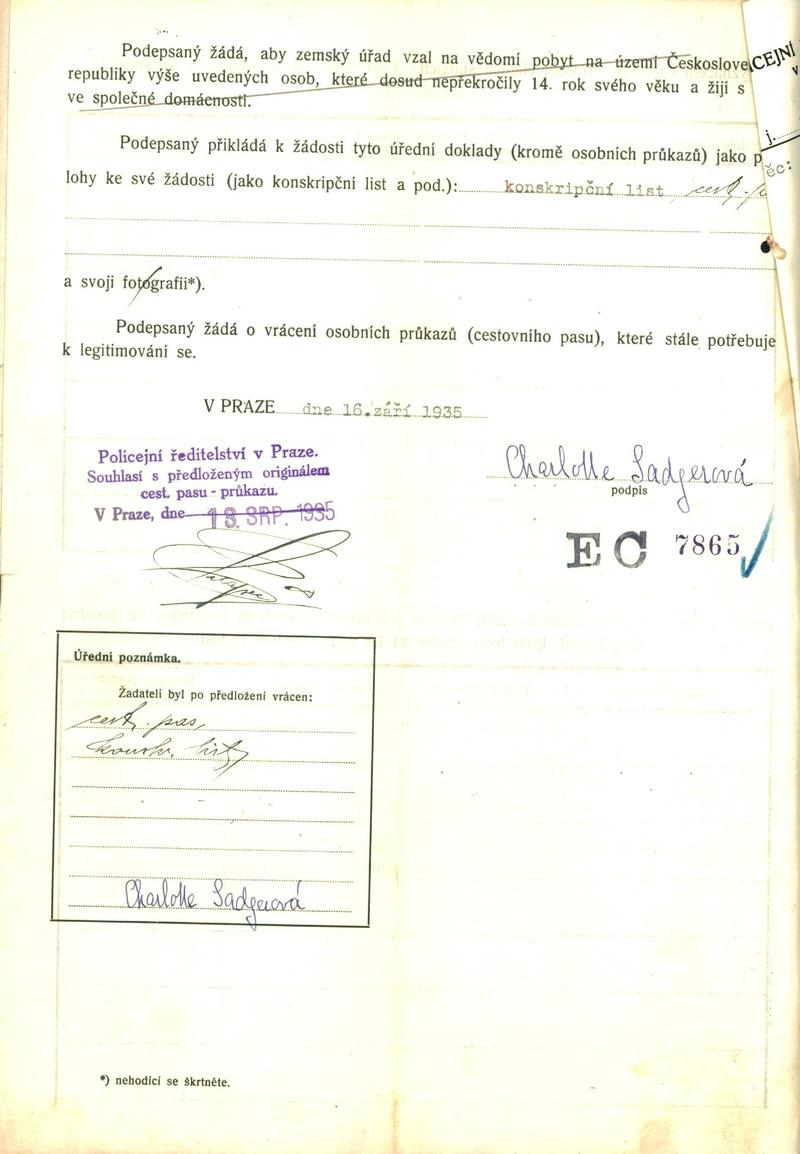 Podepsaný žádá, aby zemský úřad vzal na vědomí pobyt na území Českoslove
republiky výše uvedených osob, které dosud nepřekročily 14. rok svého věku a žijí s
ve společné domácnosti.
CEJNÍ
Podepsaný přikládá k žádosti tyto úřední doklady (kromě osobních průkazů) jako p
lohy ke své žádosti (jako konskripční list a pod.): konskripční list, cest. p
a svoji fotografii*).
Podepsaný žádá o vrácení osobních průkazů (cestovního pasu), které stále potřebuje
k legitimování se.
V PRAZE dne 16.září 1935
Policejní ředitelství v Praze.
Souhlasí s předloženým originálem
cest. pasu - průkazu.
V Praze, dne 13. SRP. 1935
Charlotte Sadgerová
podpis
EC 7865
Úřední poznámka.
Žadateli byl po předložení vrácen:
cest. pas,
konskr. list
Charlotte Sadgerová
*) nehodící se škrtněte.